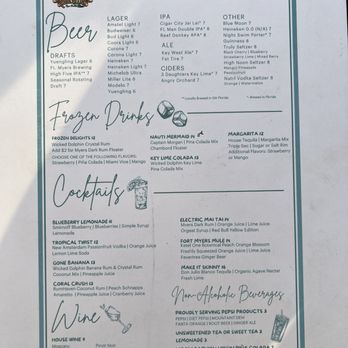 Beer
DRAFTS
Yuengling Lager 6
FL Myers Brewing
High Five IPA* 7
Seasonal Rotating
Draft 7
LAGER
Amstel Light 7
Budweiser 6
Bud Light 6
Coors Light 6
Corona 7
Corona Light 7
Heineken 7
Heineken Light 7
Michelob Ultra
Miller Lite 6
Modelo 7
Yuengling 6
IPA
Cigar City Jai Lai* 7
FL Man Double IPA* 8
Reef Donkey APA* 8
ALE
Key West Ale* 7
Fat Tire 7
CIDERS
3 Daughters Key Lime* 7
Angry Orchard 7
OTHER
Blue Moon 7
Heineken 0.0 (N/A) 7
Night Swim Porter* 7
Guinness 8
Truly Seltzer 8
Black Cherry |
Strawberry Lime | Mixed Berry
High Noon Seltzer 8
Mango | Pineapple
Passionfruit
Nutrl Vodka Seltzer 8
Orange | Watermelon
Frozen Drinks
FROZEN DELIGHTS 12
Wicked Dolphin Crystal Rum
Add $2 for Myers Dark Rum Floater
CHOOSE ONE OF THE FOLLOWING FLAVORS:
Strawberry | Piña Colada | Miami Vice | Mango
NAUTI MERMAID 14
Captain Morgan | Piña Colada Mix
Chambord Floater
KEY LIME COLADA 13
Wicked Dolphin Key Lime
Piña Colada Mix
MARGARITA 12
House Tequila | Margarita Mix
Triple Sec | Sugar or Salt Rim
Additional Flavors: Strawberry
or Mango
Cocktails
BLUEBERRY LEMONADE 11
Smirnoff Blueberry | Blueberries | Simple Syrup
Lemonade
TROPICAL TWIST 12
New Amsterdam Passionfruit Vodka | Orange Juice
Lemon Lime Soda
GONE BANANA 13
Wicked Dolphin Banana Rum & Crystal Rum
Coconut Mix | Pineapple Juice
CORAL CRUSH 13
RumHaven Coconut Rum | Peach Schnapps
Amaretto | Pineapple Juice | Cranberry Juice
ELECTRIC MAI TAI 14
Myers Dark Rum | Orange Juice | Lime Juice
Orgeat Syrup | Red Bull Yellow Edition
FORT MYERS MULE 14
Ketel One Botanical Peach Orange Blossom
Freshly Squeezed Orange Juice | Lime Juice
Fevertree Ginger Beer
MAKE IT SKINNY 15
Don Julio Blanco Tequila | Organic Agave Nectar
Fresh Lime
Wine
HOUSE WINE 9
Non-Alcoholic Beverages
PROUDLY SERVING PEPSI PRODUCTS 3
PEPSI | DIET PEPSI | MOUNTAIN DEW
FANTA ORANGE | ROOT BEER | GINGER ALE
UNSWEETENED TEA OR SWEET TEA 3
LEMONADE 3